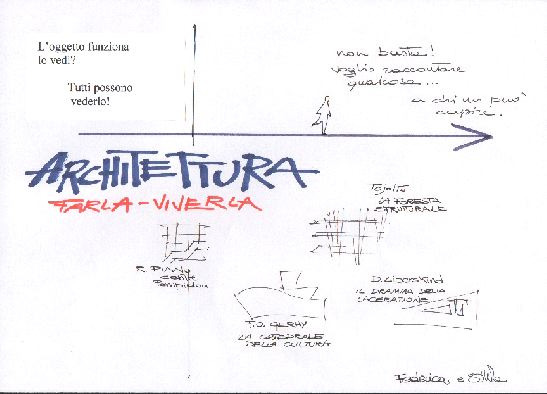 L'oggetto funziona
lo vedi?
Tutti possono
vederlo!
non basta!
voglio raccontare
qualcosa...
a chi mi può
capire.
ARCHITETTURA
FARLA - VIVERLA
LA FORESTA
STRUTTURALE
R. Piano
D. LIBESKIND
IL DRAMMA DELLA
LACERAZIONE
F.O. GEHRY
LA CATTEDRALE
DELLA CULTURA
Federica, e